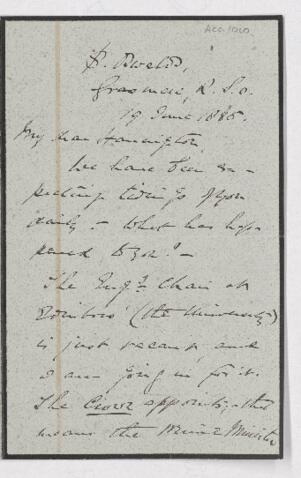 Grasmere, R.S.O.
19 June 1885.
My dear Harrington,
We have been ex-
pecting tidings of you
daily. – What has hap-
pened to you? –
The Eng. Chair at
Edinboro' (the University)
is just vacant, and
I am going in for it.
The Crown appoints, – that
means the Prime Minister